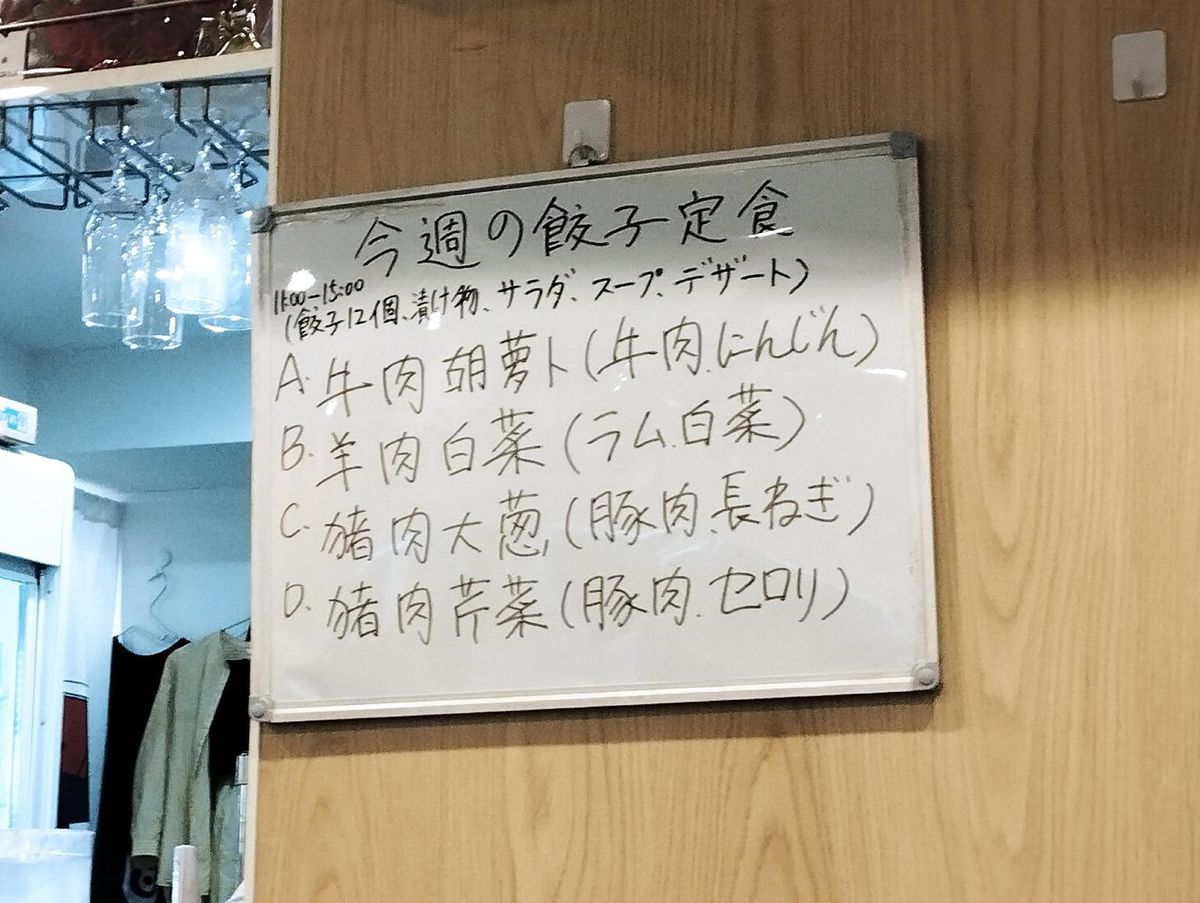 今週の餃子定食
11:00-15:00
(餃子12個、漬け物、サラダ、スープ、デザート)
A. 牛肉胡萝卜(牛肉、にんじん)
B. 羊肉白菜(ラム、白菜)
C. 猪肉大葱(豚肉、長ねぎ)
D. 猪肉芹菜(豚肉、セロリ)